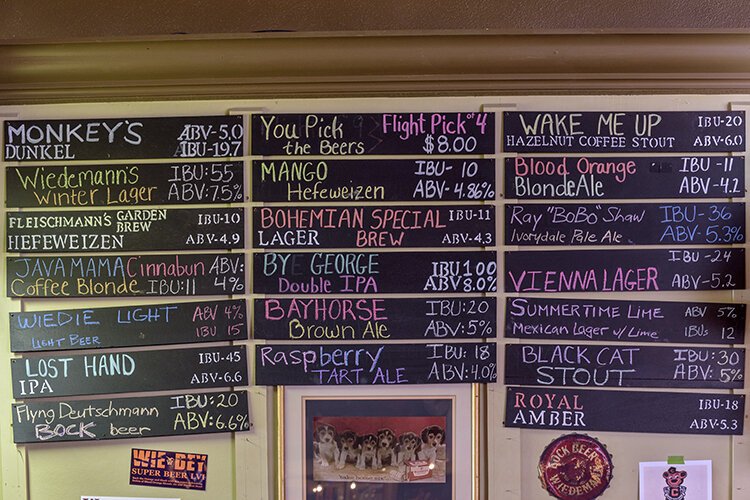 MONKEY'S ABV-5.0
DUNKEL IBU-19.7
Wiedemann's IBU:55
Winter Lager ABV:7.5%
FLEISCHMANN'S GARDEN BREW IBU-10
HEFEWEIZEN ABV-4.9
JAVA MAMA Cinnabun ABV:
Coffee Blonde IBU:11 4%
WIEDIE LIGHT ABV 4%
LIGHT BEER IBU 15
LOST HAND IBU-45
IPA ABV-6.6
Flyng Deutschmann IBU:20
BOCK beer ABV:6.6%
WIE-DEY
SUPER BEER LVI
You Pick Flight Pick 4
the Beers $8.00
MANGO IBU-10
Hefeweizen ABV-4.86%
BOHEMIAN SPECIAL IBU-11
LAGER BREW ABV-4.3
BYE GEORGE IBU 100
Double IPA ABV 8.0%
BAYHORSE IBU:20
Brown Ale ABV:5%
Raspberry IBU:18
TART ALE ABV:4.0%
WAKE ME UP IBU-20
HAZELNUT COFFEE STOUT ABV-6.0
Blood Orange IBU-11
Blonde Ale ABV-4.2
Ray "BoBo" Shaw IBU-36
Ivorydale Pale Ale ABV-5.3%
VIENNA LAGER IBU-24
ABV-5.2
SUMMERTIME LIME ABV 5%
Mexican Lager w/ Lime IBUs 12
BLACK CAT IBU:30
STOUT ABV:5%
ROYAL IBU-18
AMBER ABV-5.3
BOCK BEER
WIEDEMANN